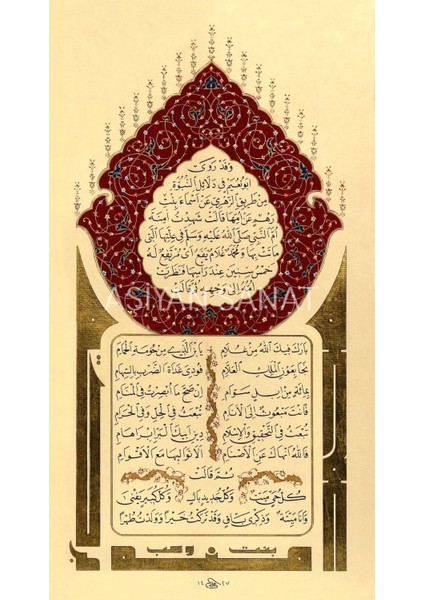 وَقَدْ رَوَى
ابُو نُعَيْمٍ فِي دَلَائِلِ النُّبُوَّةِ
مِنْ طَرِيقِ الزُّهْرِيِّ عَنْ اَسْمَاءَ بِنْتِ
رُهْمٍ عَنْ اُمِّهَا قَالَتْ شَهِدْتُ اٰمِنَةَ
اُمَّ النَّبِيِّ صَلَّى اللهُ عَلَيْهِ وَسَلَّمَ فِي عِلَّتِهَا الَّتِى
مَاتَتْ بِهَا وَمُحَمَّدٌ غُلَامٌ يَفَعٌ اَىْ مُرْتَفِعٌ لَهُ
خَمْسُ سِنِينَ عِنْدَ رَاْسِهَا فَنَظَرَتْ
اُمُّهُ اِلَى وَجْهِهِ وَقَالَتْ
ASİYAN SANAT
بَارَكَ فِيكَ اللهُ مِنْ غُلَامِ يَا بْنَ الَّذِي مِنْ حَوْمَةِ الْحِمَامِ
نَجَا بِعَوْنِ الْمَلِكِ الْعَلَّامِ فُودِيَ غَدَاةَ الضَّرْبِ بِالسِّهَامِ
بِمِائَةٍ مِنْ اِبِلٍ سَوَامِ اِنْ صَحَّ مَا اَبْصَرْتُ فِي الْمَنَامِ
فَاَنْتَ مَبْعُوثٌ اِلَى الْاَنَامِ تُبْعَثُ فِي الْحِلِّ وَفِي الْحَرَامِ
تُبْعَثُ فِي التَّحْقِيقِ وَالْاِسْلَامِ دِينِ اَبِيكَ الْبَرِّ اِبْرَاهَامِ
فَاللهُ اَنْهَاكَ عَنِ الْاَصْنَامِ اَلَّا تُوَالِيَهَا مَعَ الْاَقْوَامِ
ثُمَّ قَالَتْ
كُلُّ حَيٍّ مَيِّتٌ وَكُلُّ جَدِيدٍ بَالٍ وَكُلُّ كَبِيرٍ يَفْنَى
وَاَنَا مَيِّتَةٌ وَذِكْرِي بَاقٍ وَقَدْ تَرَكْتُ خَيْرًا وَوَلَدْتُ طُهْرًا
بنت وهب
١٤٢٧